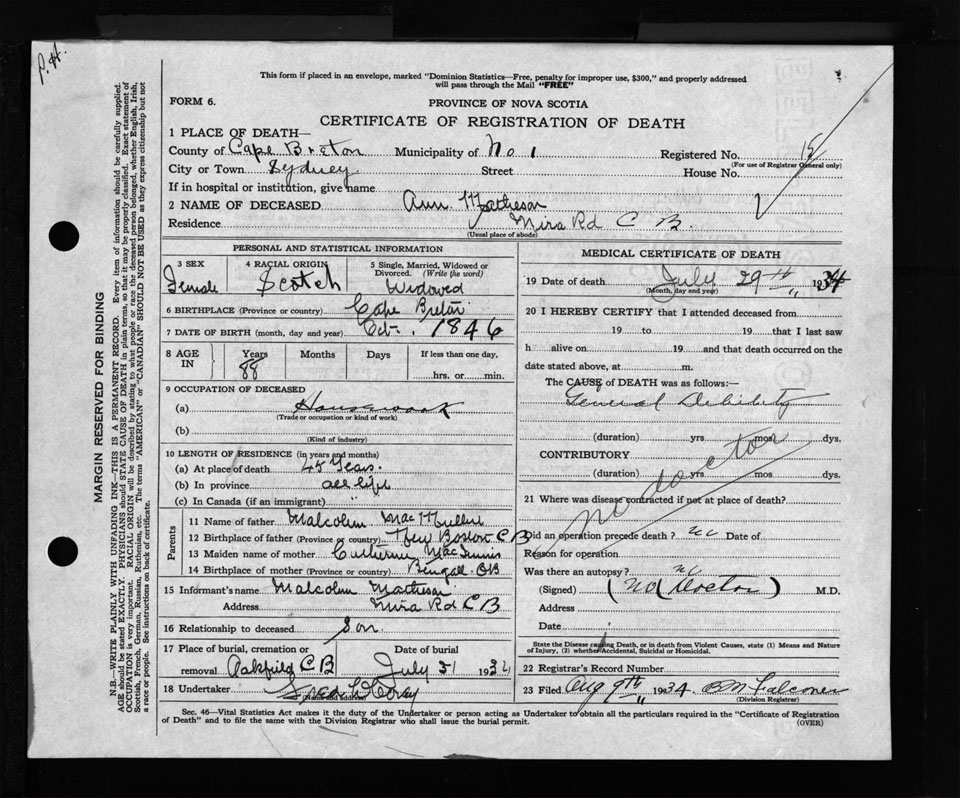 P. H.
This form if placed in an envelope, marked "Dominion Statistics—Free, penalty for improper use, $300," and properly addressed
will pass through the Mail "FREE"
FORM 6.
PROVINCE OF NOVA SCOTIA
CERTIFICATE OF REGISTRATION OF DEATH
1 PLACE OF DEATH—
County of Cape Breton Municipality of No 1 Registered No.
(For use of Registrar General only)
City or Town Sydney Street House No.
If in hospital or institution, give name
2 NAME OF DECEASED Ann Matheson
Residence Mira Rd C B.
(Usual place of abode)
PERSONAL AND STATISTICAL INFORMATION
3 SEX 4 RACIAL ORIGIN 5 Single, Married, Widowed or Divorced. (Write the word)
Female Scotch Widowed
6 BIRTHPLACE (Province or country) Cape Breton
7 DATE OF BIRTH (month, day and year) Oct. 1846
8 AGE IN Years Months Days If less than one day,
88 hrs. or min.
9 OCCUPATION OF DECEASED
(a) Housework
(Trade or occupation or kind of work)
(b)
(Kind of industry)
10 LENGTH OF RESIDENCE (in years and months)
(a) At place of death 45 Years.
(b) In province all life
(c) In Canada (if an immigrant) "
Parents
11 Name of father Malcolm
12 Birthplace of father (Province or country) New Boston C B
13 Maiden name of mother Catherine MacInnis
14 Birthplace of mother (Province or country) CB
15 Informant's name Malcolm Matheson
Address Mira Rd C B
16 Relationship to deceased Son
17 Place of burial, cremation or Date of burial
removal Oakfield C B July 31 1934
18 Undertaker Fred
(Name and address)
MEDICAL CERTIFICATE OF DEATH
19 Date of death July 29th " 1934
(Month, day and year)
20 I HEREBY CERTIFY that I attended deceased from
19 to 19 that I last saw
h alive on 19 and that death occurred on the
date stated above, at m.
The CAUSE of DEATH was as follows:—
General Debility
(duration) yrs mos dys.
CONTRIBUTORY
(duration) yrs mos dys.
no doctor
21 Where was disease contracted if not at place of death?
Did an operation precede death? no Date of
Reason for operation
Was there an autopsy? no
(Signed) (No Doctor) M.D.
Address
Date
State the Disease causing Death, or in death from Violent Causes, state (1) Means and Nature of Injury, (2) whether Accidental, Suicidal or Homicidal.
22 Registrar's Record Number
23 Filed Aug 9th " 1934 B M Falconer
(Division Registrar)
Sec. 46—Vital Statistics Act makes it the duty of the Undertaker or person acting as Undertaker to obtain all the particulars required in the "Certificate of Registration
of Death" and to file the same with the Division Registrar who shall issue the burial permit.
(OVER)
MARGIN RESERVED FOR BINDING
N.B.—WRITE PLAINLY WITH UNFADING INK—THIS IS A PERMANENT RECORD. Every item of information should be carefully supplied.
AGE should be stated EXACTLY. PHYSICIANS should STATE CAUSE OF DEATH in plain terms, so that it may be properly classified. Exact statement of
OCCUPATION is very important. RACIAL ORIGIN will be described by stating to what people or race the deceased person belonged, whether English, Irish,
Scottish, French, German, Russian, Ruthenian, etc. The terms "AMERICAN" or "CANADIAN" SHOULD NOT BE USED as they express citizenship but not
a race or people. See instructions on back of certificate.